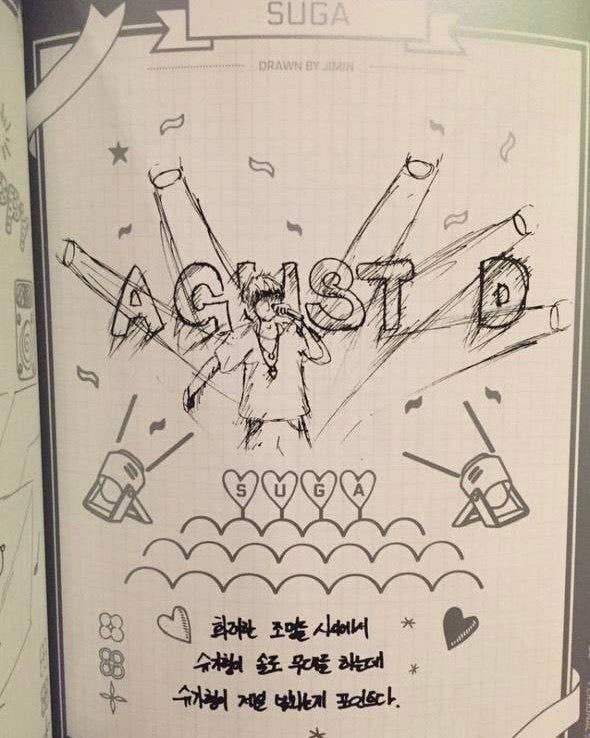 SUGA
DRAWN BY JIMIN
AGUST D
S U G A
화려한 조명들 사이에서
슈가형이 솔로 무대를 하는데
슈가형이 제일 빛나는게 포인트다.